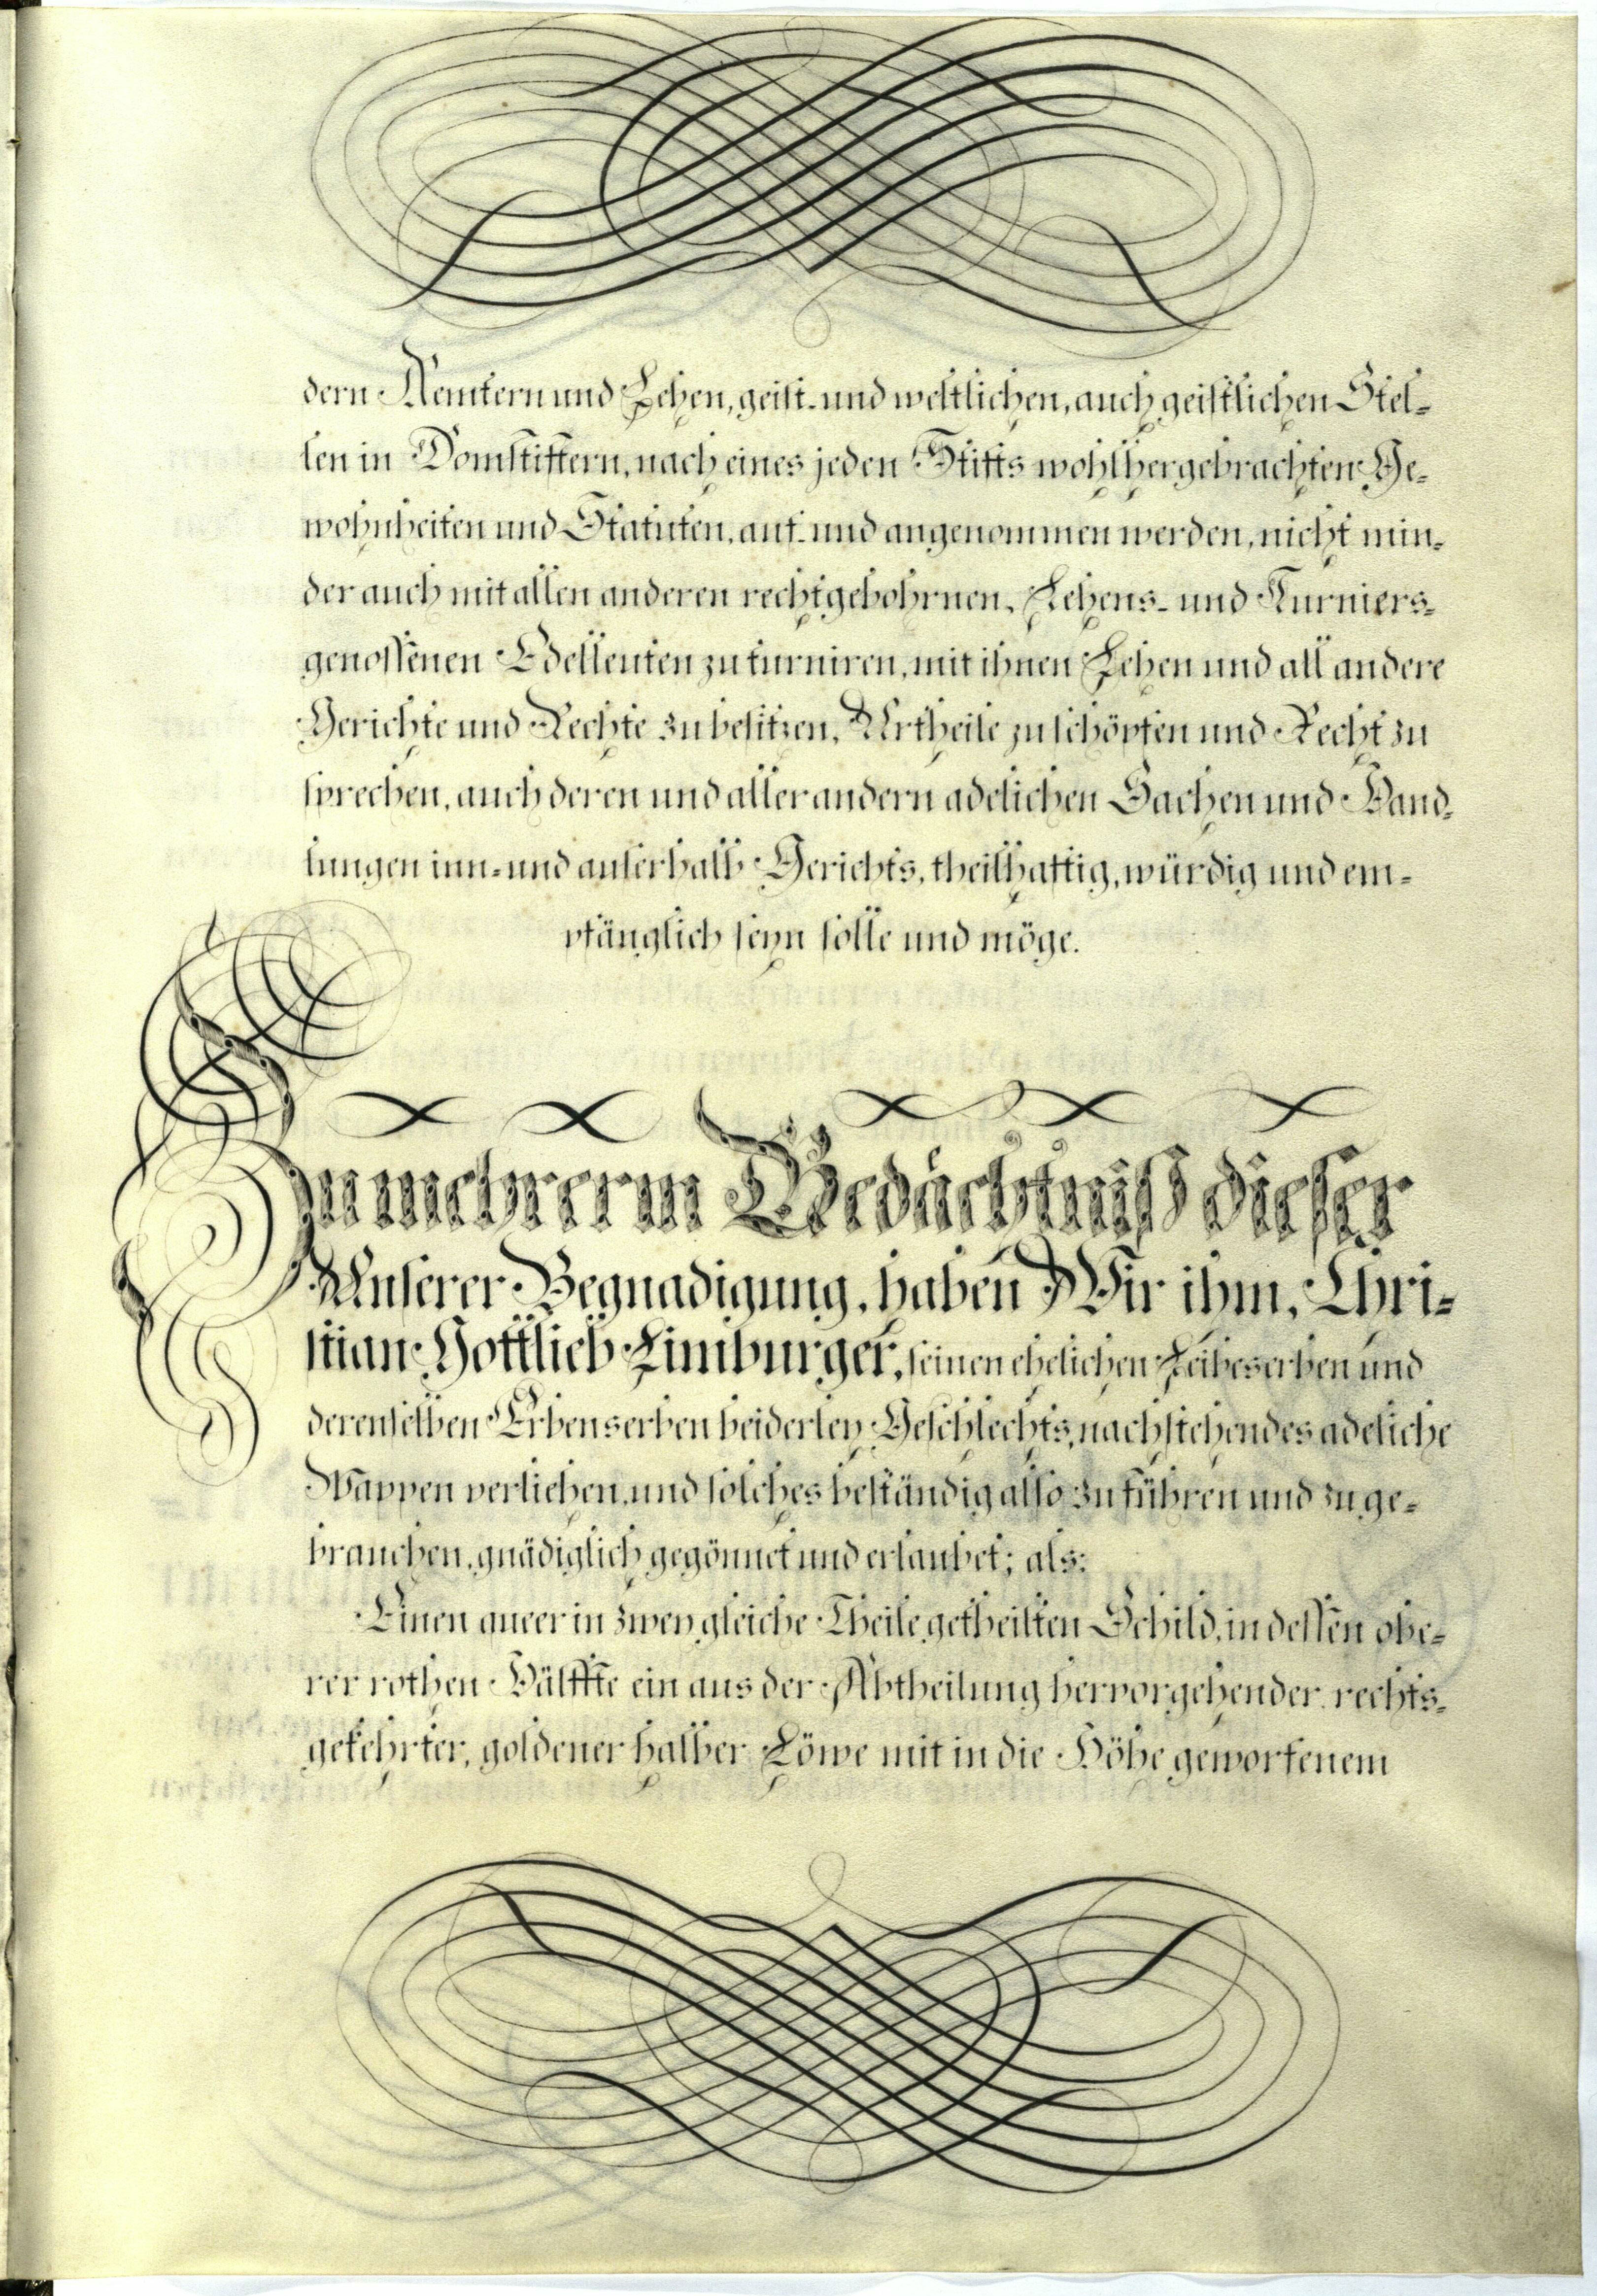 dern Aemtern und Lehen, geist- und weltlichen, auch geistlichen Stel-
len in Domstiftern, nach eines jeden Stifts wohlhergebrachten Ge-
wohnheiten und Statuten, auf- und angenommen werden, nicht min-
der auch mit allen anderen rechtgebohrnen, Lehens- und Turniers-
genossenen Edelleuten zu turniren, mit ihnen Lehen und all andere
Gerichte und Rechte zu besitzen, Urtheile zu schöpfen und Recht zu
sprechen, auch deren und aller andern adelichen Sachen und Hand-
lungen inn- und auserhalb Gerichts, theilhaftig, würdig und em-
pfänglich seyn solle und möge.
Zu mehrerm Gedächtniß dieser
Unserer Begnadigung, haben Wir ihm, Chri-
stian Gottlieb Limburger, seinen ehelichen Leibeserben und
derenselben Erbenserben beiderley Geschlechts, nachstehendes adeliche
Wappen verliehen, und solches beständig also zu führen und zu ge-
brauchen, gnädiglich gegönnet und erlaubet; als:
Einen queer in zwey gleiche Theile getheilten Schild, in dessen obe-
rer rothen Hälffte ein aus der Abtheilung hervorgehender, rechts-
gekehrter, goldener halber Löwe mit in die Höhe geworfenem